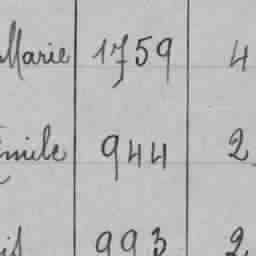 Marie 1759 4
Emile 944 2
993 2